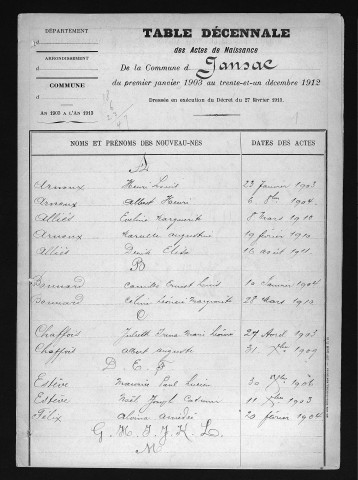 DÉPARTEMENT
d
ARRONDISSEMENT
d
COMMUNE
d
AN 1903 A L'AN 1913
TABLE DÉCENNALE
des Actes de Naissance
De la Commune d Jansac
du premier janvier 1903 au trente-et-un décembre 1912
Dressée en exécution du Décret du 27 février 1913.
NOMS ET PRÉNOMS DES NOUVEAU-NÉS DATES DES ACTES
A
Arnoux Henri Louis 23 Janvier 1903
Arnoux Albert Henri 6 8bre 1904
Alliés Eveline Marguerite 8 Mars 1910
Arnoux Marcelle Augustine 19 février 1910
Alliés Denis Elisée 16 août 1911
B
Bonnard Camille Ernest Louis 10 Janvier 1904
Bonnard Léonie Marguerite 28 Mars 1910
C
Chaffois Juliette Irma Marie 27 Avril 1903
Chaffois Albert Auguste 31 1909
D. E. F
Estève Maurice Paul Lucien 30 1906
Estève Noël Joseph 11 1903
Félix Amédée 20 février 1904
G. H. I. J. K. L.
M